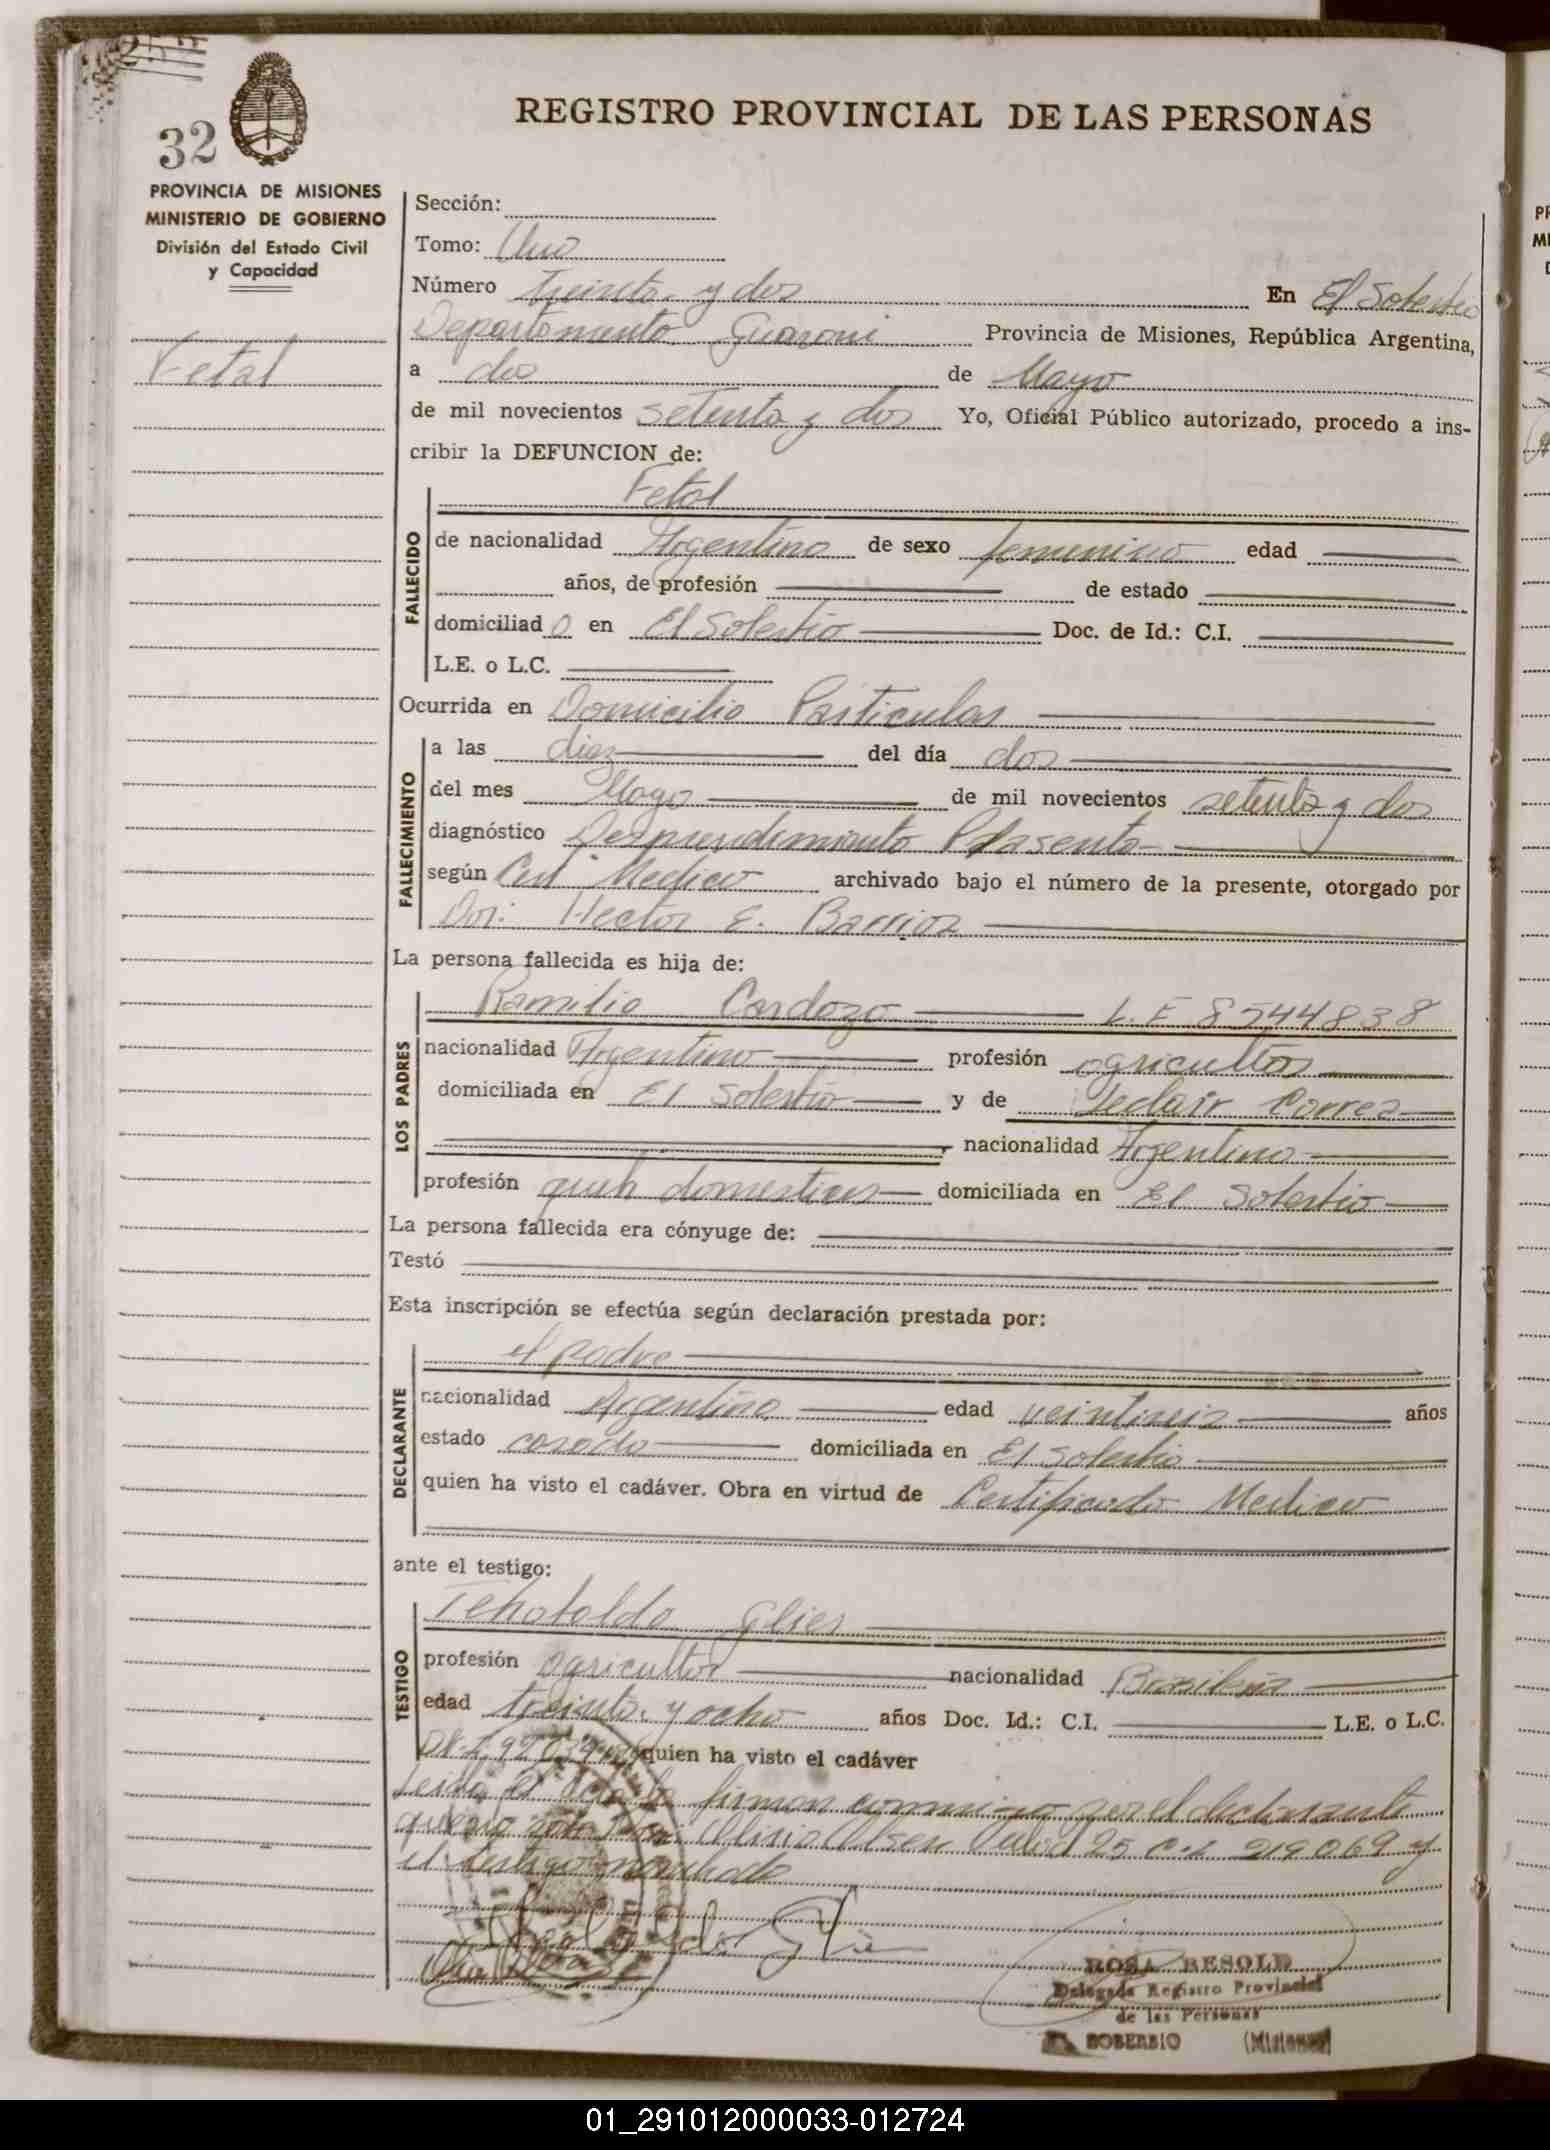 REGISTRO PROVINCIAL DE LAS PERSONAS
32
PROVINCIA DE MISIONES
MINISTERIO DE GOBIERNO
División del Estado Civil
y Capacidad
Fetal
Sección:
Tomo: Uno
Número Treinta y dos En El Soberbio
Departamento Guarani Provincia de Misiones, República Argentina,
a dos de Mayo
de mil novecientos setenta y dos Yo, Oficial Público autorizado, procedo a ins-
cribir la DEFUNCION de:
Fetal
FALLECIDO
de nacionalidad Argentino de sexo femenino edad
años, de profesión de estado
domiciliad o en El Soberbio Doc. de Id.: C.I.
L.E. o L.C.
Ocurrida en Domicilio Particular
FALLECIMIENTO
a las diez del día dos
del mes Mayo de mil novecientos setenta y dos
diagnóstico Desprendimiento Plasenta
según Cert Medico archivado bajo el número de la presente, otorgado por
Dor: Hector E. Barrios
La persona fallecida es hija de:
LOS PADRES
Ramilio Cardozo L.E 8544838
nacionalidad Argentino profesión agricultor
domiciliada en El Soberbio y de Teclair Correa
nacionalidad Argentina
profesión queh domesticos domiciliada en El Soberbio
La persona fallecida era cónyuge de:
Testó
Esta inscripción se efectúa según declaración prestada por:
DECLARANTE
el padre
nacionalidad Argentino edad veintiseis años
estado casado domiciliada en El Soberbio
quien ha visto el cadáver. Obra en virtud de Certificado Medico
ante el testigo:
TESTIGO
Tehobaldo Glier
profesión agricultor nacionalidad Brasileña
edad treinta y ocho años Doc. Id.: C.I. L.E. o L.C.
quien ha visto el cadáver
Leida el acta la firman conmigo por el declarante
25 C.I. 219.069 y
el testigo nombrado
ROSA RESOLD
Delegada Registro Provincial
de las Personas
SOBERBIO (Misiones)
01_291012000033-012724